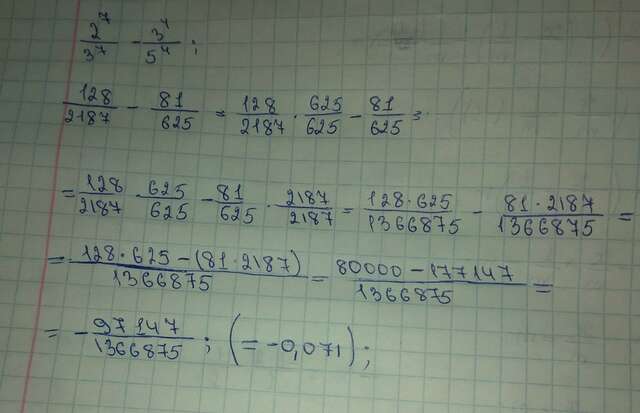 2^7/3^7 - 3^4/5^4 ;
128/2187 - 81/625 = 128/2187 · 625/625 - 81/625 =
= 128/2187 · 625/625 - 81/625 · 2187/2187 = 128·625/1366875 - 81·2187/1366875 =
= 128·625-(81·2187)/1366875 = 80000-177147/1366875 =
= - 97147/1366875 ; (= -0,071) ;